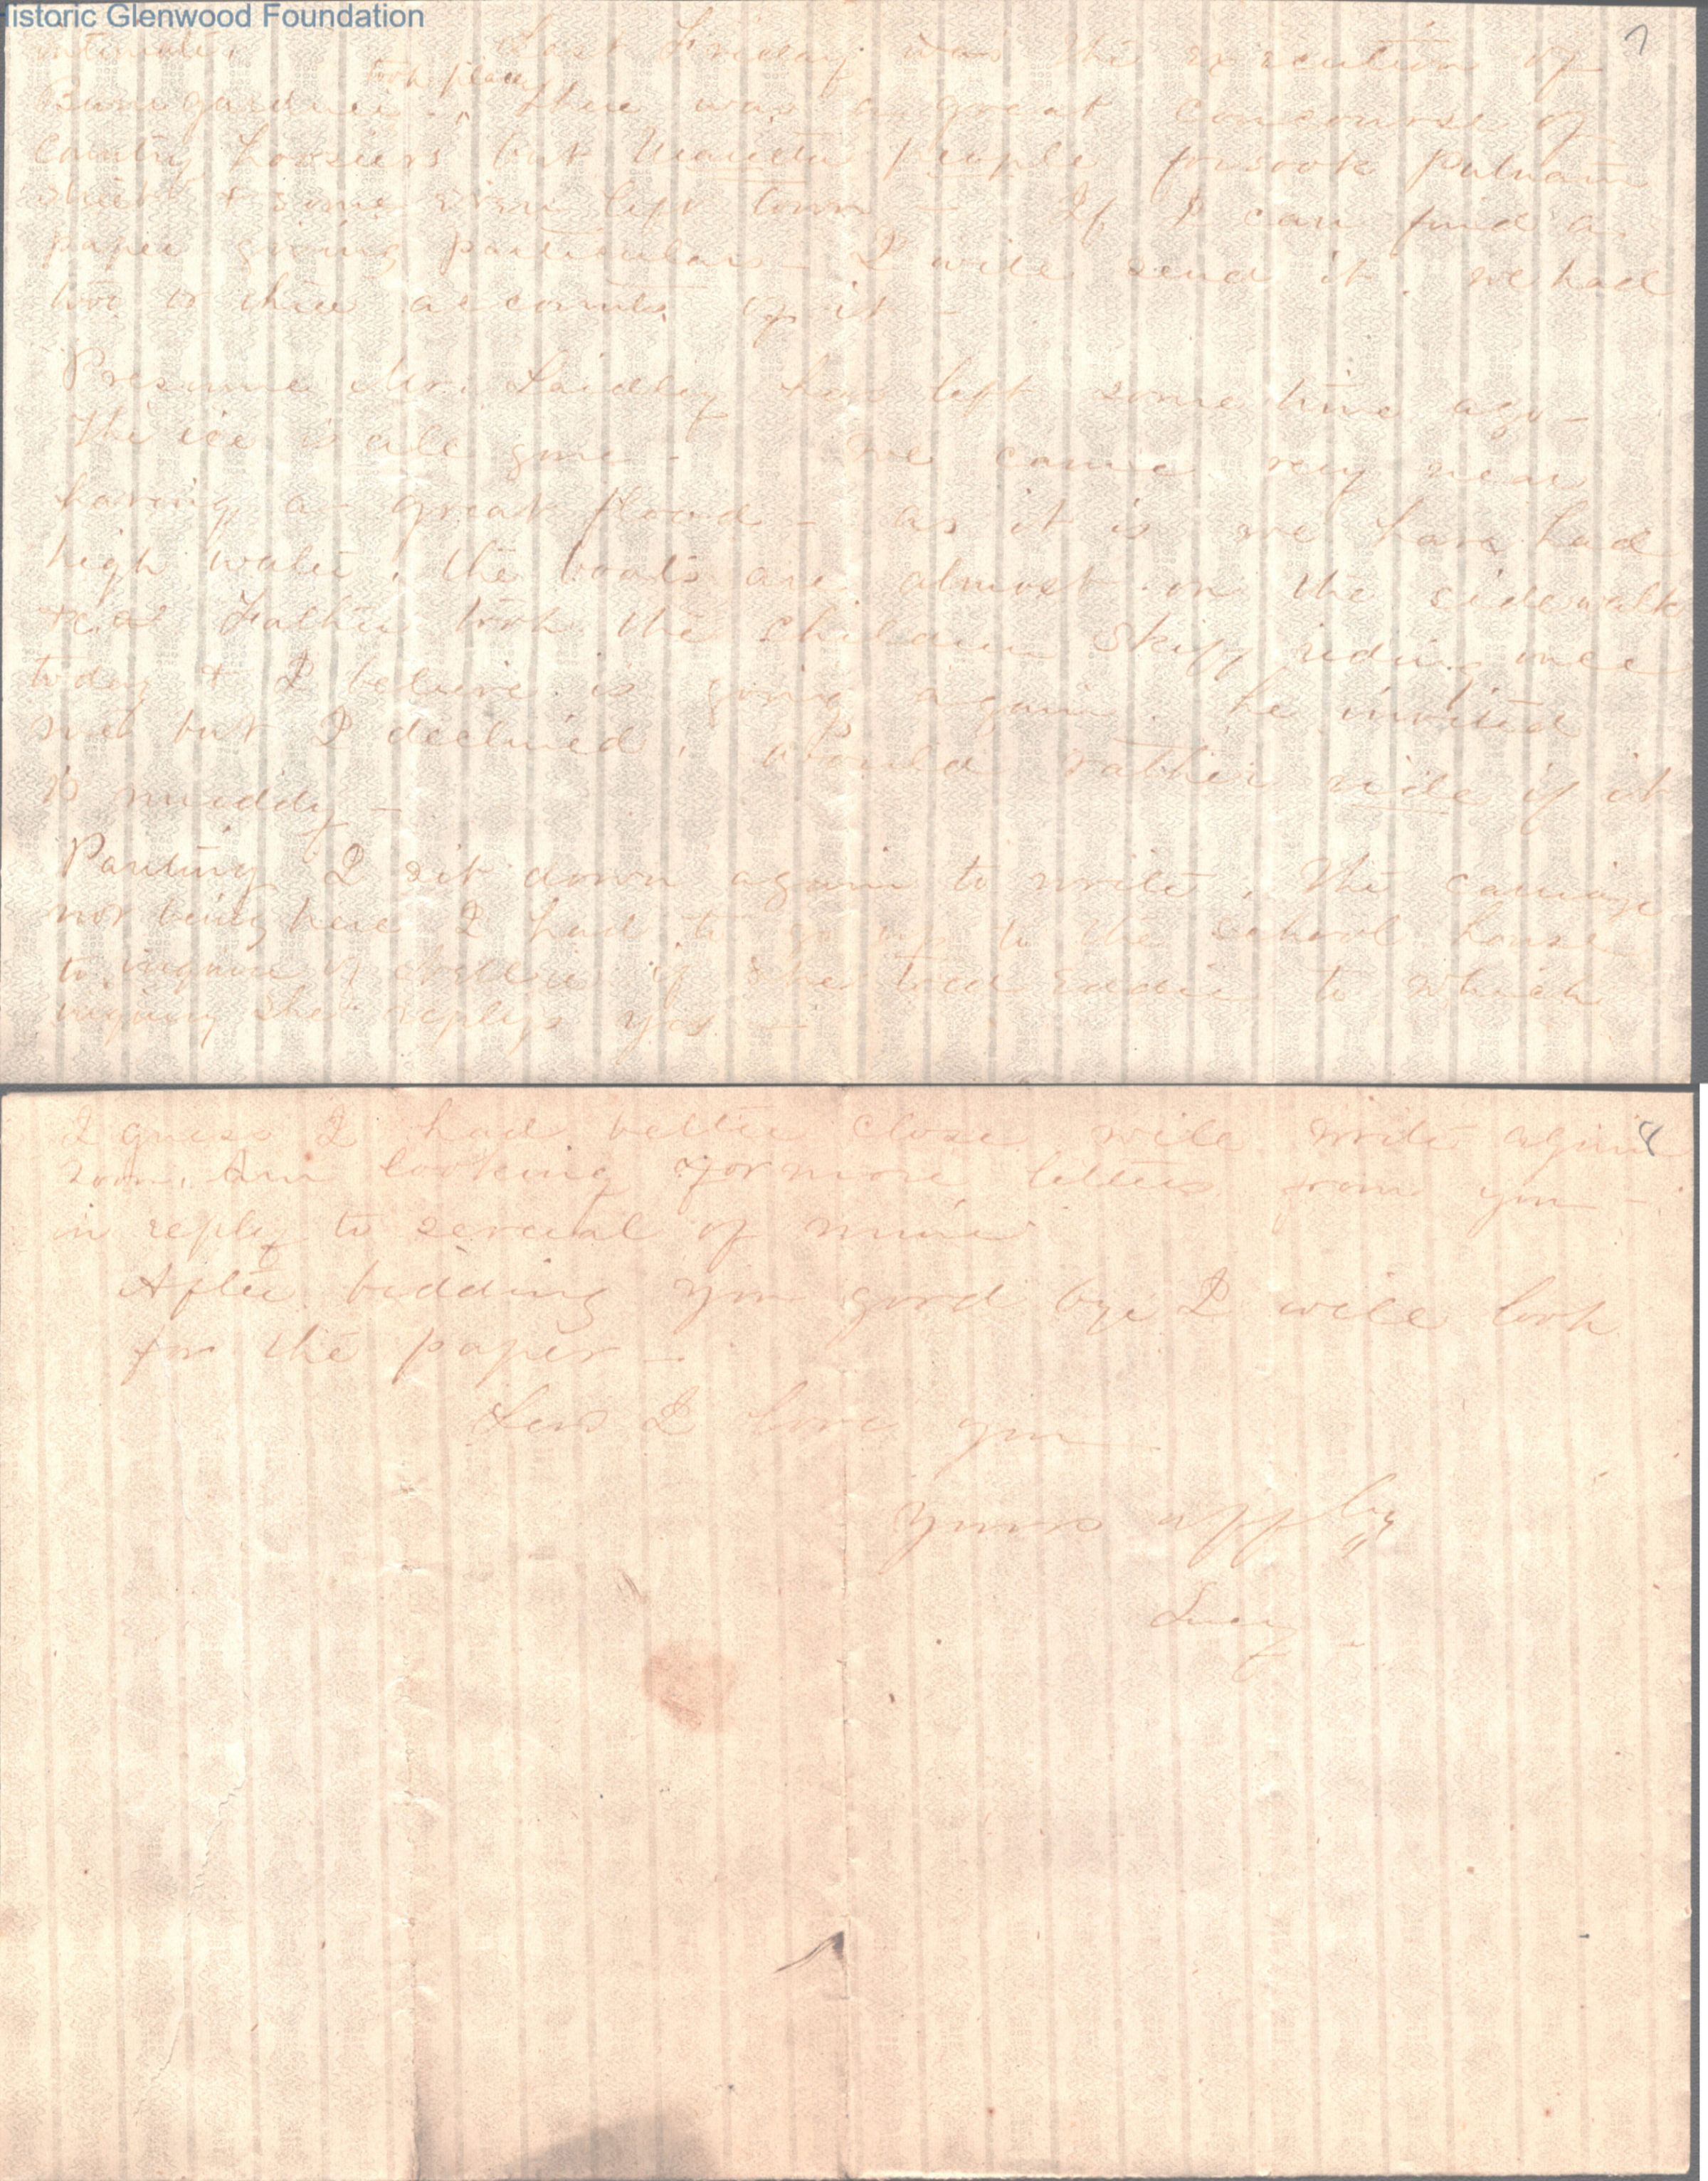 Historic Glenwood Foundation
7
intimate. Last Friday was the execution of
took place
Bumgardner. There was a great concourse of
country hoosiers but Marietta people forsook Putnam
street & some even left town – If I can find a
paper giving particulars I will send it. we had
two or three accounts of it –
Presume Mr. Laidley has left some time ago –
The ice is all gone – We came very near
having a great flood – as it is we have had
high water, the boats are almost on the sidewalk
Father took the children skiff riding once
today & I believe is going again. he invited
me but I declined, would rather ride if it
is muddy –
Panting I sit down again to write. The carriage
not being here I had to go up to the school house
to inquire of Nellie if she told Eddie to which
inquiry she replys yes –
8
I guess I had better close will write again
soon. Am looking for more letters from you –
in reply to several of mine
After bidding you good bye I will look
for the paper –
I love you
Yours affly
Lucy –